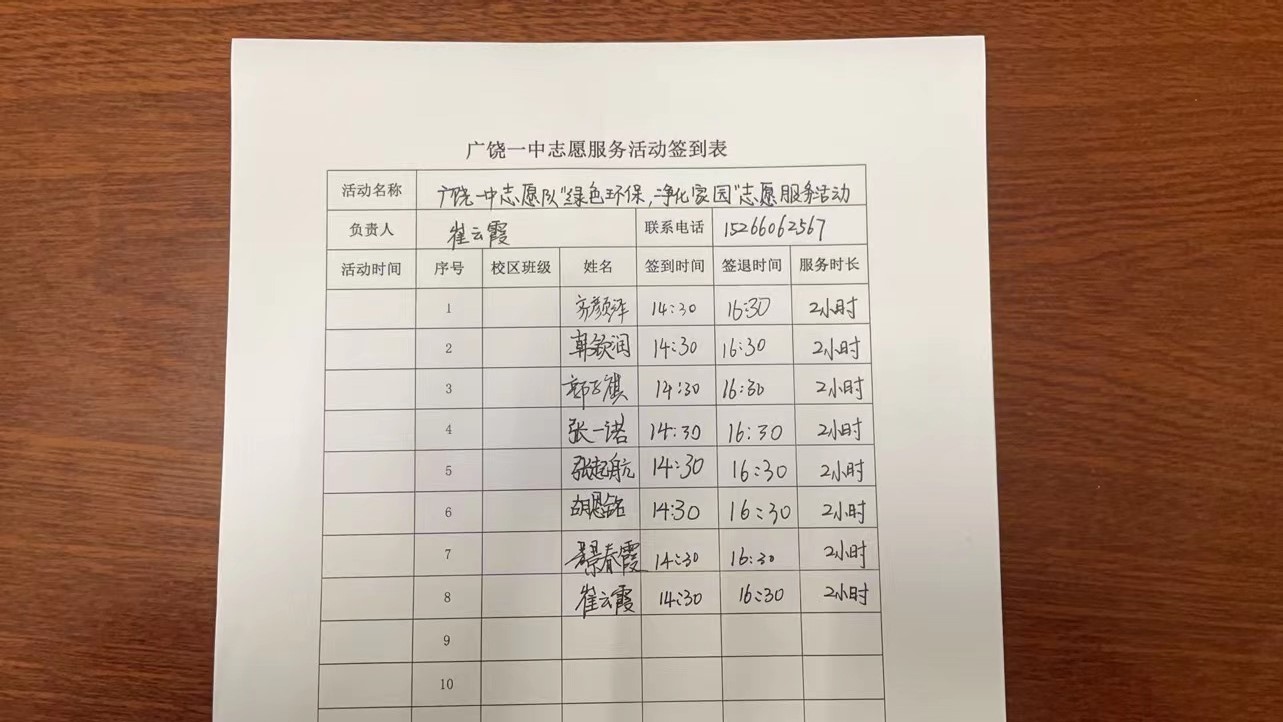 广饶一中志愿服务活动签到表
活动名称 广饶一中志愿队"绿色环保,净化家园"志愿服务活动
负责人 崔云霞 联系电话 15266062567
活动时间 序号 校区班级 姓名 签到时间 签退时间 服务时长
1 14:30 16:30 2小时
2 韩钦润 14:30 16:30 2小时
3 14:30 16:30 2小时
4 张一诺 14:30 16:30 2小时
5 张起航 14:30 16:30 2小时
6 胡恩铭 14:30 16:30 2小时
7 春霞 14:30 16:30 2小时
8 崔云霞 14:30 16:30 2小时
9
10